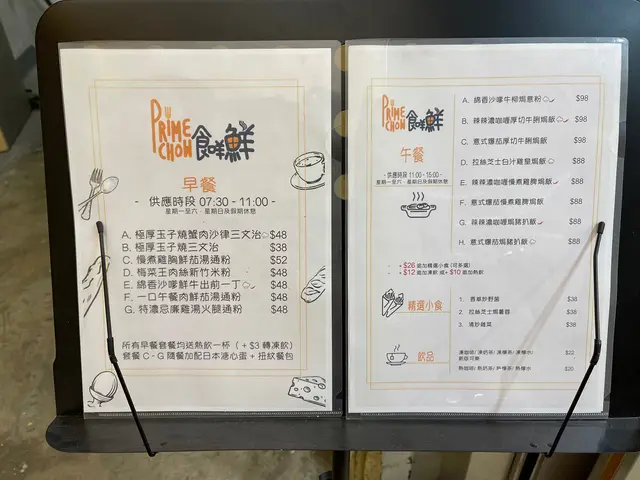 PRIME
CHOW
食咩鮮
早餐
- 供應時段 07:30 - 11:00 -
星期一至六．星期日及假期休息
A. 極厚玉子燒蟹肉沙律三文治 $48
B. 極厚玉子燒三文治 $38
C. 慢煮雞胸鮮茄湯通粉 $52
D. 梅菜王肉絲新竹米粉 $48
E. 綿香沙嗲鮮牛出前一丁 $48
F. 一口午餐肉鮮茄湯通粉 $48
G. 特濃忌廉雞湯火腿通粉 $48
所有早餐套餐均送熱飲一杯（ + $3 轉凍飲）
套餐 C - G 隨餐加配日本溏心蛋 + 扭紋餐包
PRIME
CHOW
食咩鮮
午餐
- 供應時段 11:00 - 15:00 -
星期一至六．星期日及假期休息
A. 綿香沙嗲牛柳焗意粉 $98
B. 辣辣濃咖喱厚切牛脷焗飯 $98
C. 意式爆茄厚切牛脷焗飯 $98
D. 拉絲芝士白汁雞皇焗飯 $88
E. 辣辣濃咖喱慢煮雞髀焗飯 $88
F. 意式爆茄慢煮雞髀焗飯 $88
G. 辣辣濃咖喱焗豬扒飯 $88
H. 意式爆茄焗豬扒飯 $88
+ $26 追加精選小食 (可多選)
+ $12 追加凍飲 或 + $10 追加熱飲
精選小食
1. 香草炒野菌 $38
2. 拉絲芝士焗薯蓉 $38
3. 清炒雜菜 $38
飲品
凍咖啡/ 凍奶茶/ 凍檸茶/ 凍檸水/ $22
熱咖啡/ 熱奶茶/ 熱檸茶/ 熱檸水 $20